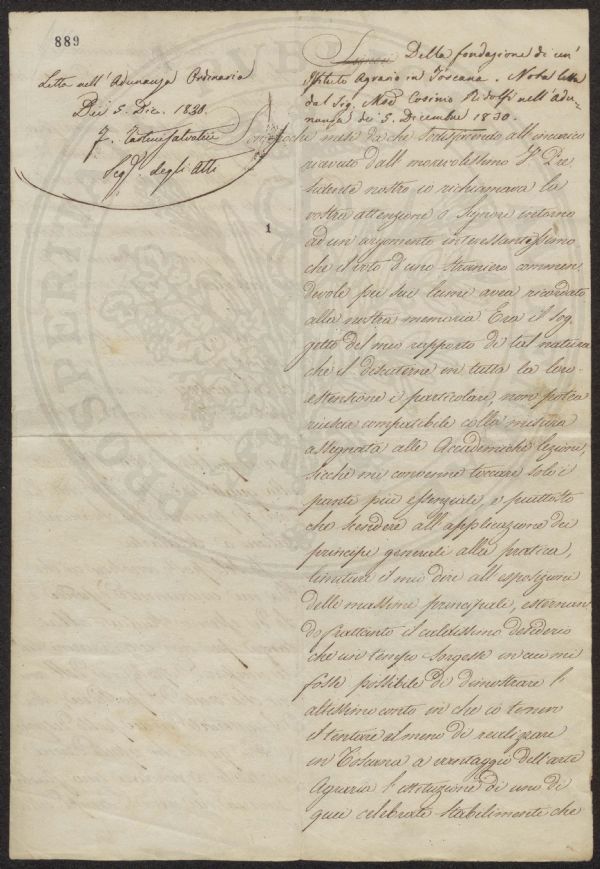 889
Letta nell'Adunanza Ordinaria
Dei 5. Dic. 1830.
F. Tartini Salvatici
Seg. degli Atti
Della fondazione di un'
Istituto Agrario in Toscana. Nota letta
dal Sig. Mse Cosimo Ridolfi nell'Adu-
nanza de' 5. Dicembre 1830.
1
Son poche mesi da che sodisfacendo all'incarico
ricevuto dall'onorevolissimo Pre
sidente nostro io richiamava la
vostra attenzione o Signori intorno
ad un'argomento interessantissimo
che il voto d'uno straniero commen
devole pei sui lumi avea ricordato
alla nostra memoria Era il sog
getto del mio rapporto di tal natura
che il discuterne in tutta la loro
estensione i particolari, non potea
riuscir compatibile colla misura
assegnata alle Accademiche lezioni,
sicchè mi convenne toccare solo i
punti più essenziali, e piuttosto
che scendere all'applicazione dei
principi generali alla pratica,
limitare il mio dire all'esposizione
delle massime principali, esternan
do frattanto il caldissimo desiderio
che un tempo sorgesse in cui mi
fosse possibile di dimostrare l'
altissimo conto in che io tenevo
il tentare almeno di realizzare
in Toscana a vantaggio dell'arte
Agraria l'istituzione di uno di
quei celebrati stabilimenti che